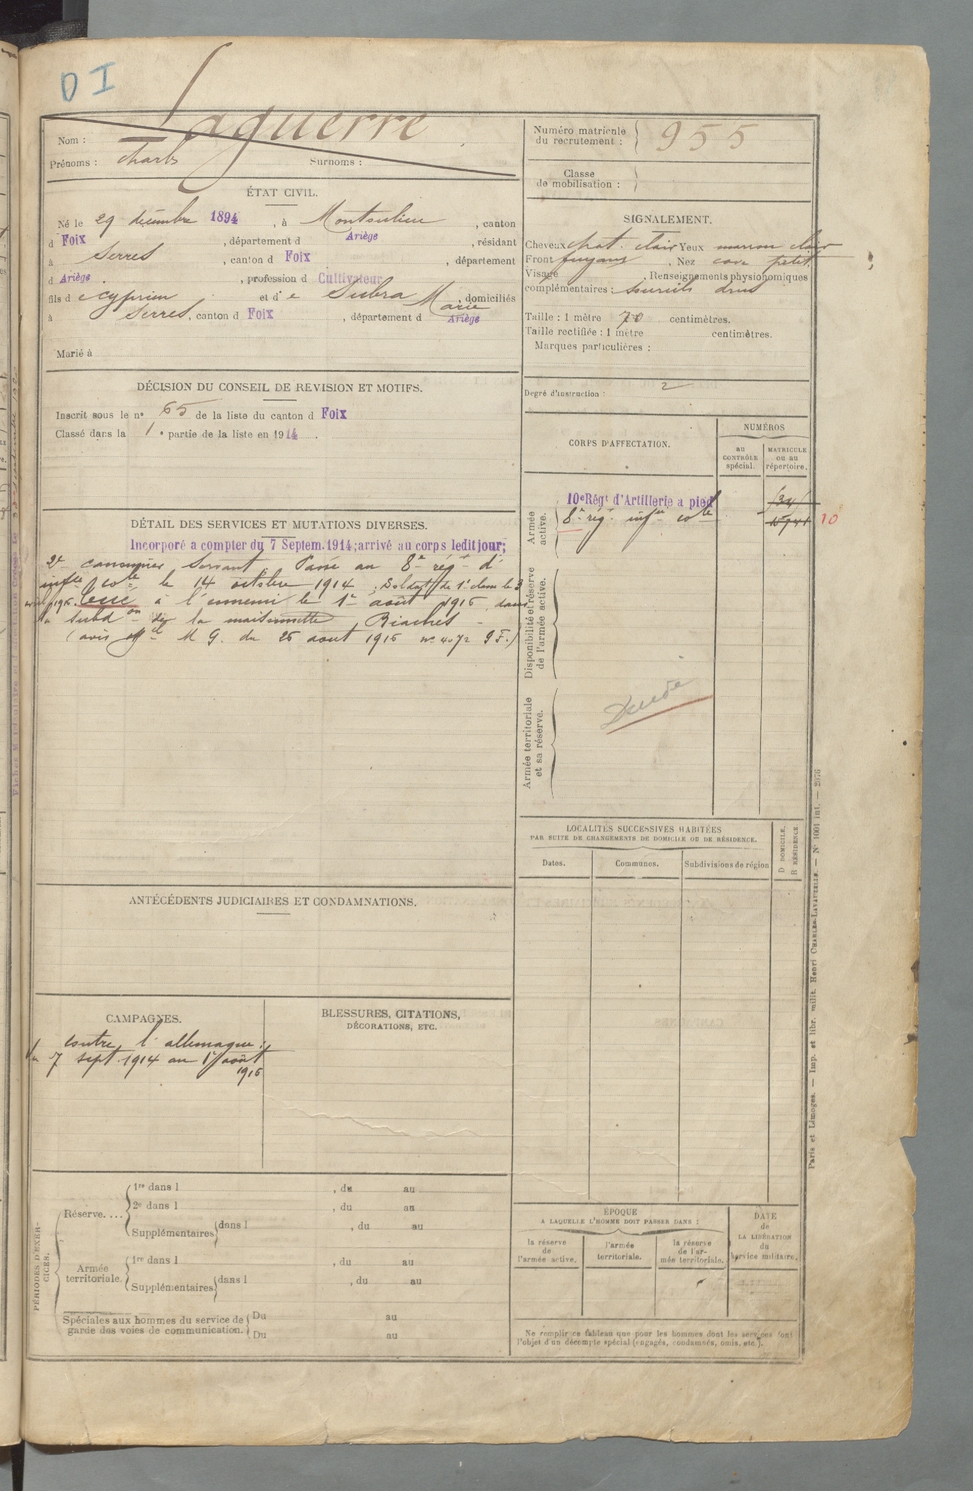 D I
Nom : Laguerre
Prénoms : Charles Surnoms :
Numéro matricule du recrutement : 955
Classe de mobilisation :
ÉTAT CIVIL.
Né le 29 décembre 1894, à Montoulieu, canton
d Foix, département d Ariège, résidant
à Serres, canton d Foix, département
d Ariège, profession d Cultivateur
fils d e Cyprien et d e Subra Marie, domiciliés
à Serres, canton d Foix, département d Ariège
Marié à
SIGNALEMENT.
Cheveux chat. clair Yeux marron clair
Front fuyant, Nez cave petit
Visage , Renseignements physionomiques
complémentaires : sourcils drus
Taille : 1 mètre 70 centimètres.
Taille rectifiée : 1 mètre centimètres.
Marques particulières :
Degré d'instruction : 2
DÉCISION DU CONSEIL DE REVISION ET MOTIFS.
Inscrit sous le n° 65 de la liste du canton d Foix
Classé dans la 1e partie de la liste en 1914.
DÉTAIL DES SERVICES ET MUTATIONS DIVERSES.
Incorporé a compter du 7 Septem. 1914; arrivé au corps ledit jour;
2e canonnier servant. Passé au 8e rég. d'
infie colle le 14 octobre 1914. Soldat de 1e classe le 3
1916. Tué à l'ennemi le 1er août 1916, dans
la subdon de la maisonnette Biaches -
(avis offel M G. du 26 aout 1916 no 4072 G F.)
CORPS D'AFFECTATION.
NUMÉROS
au CONTRÔLE spécial.
MATRICULE ou au répertoire.
Armée active.
10e Régt d'Artillerie a pied
8e rég. infie colle
10
Disponibilité et réserve de l'armée active.
Armée territoriale et sa réserve.
Décédé
LOCALITÉS SUCCESSIVES HABITÉES
PAR SUITE DE CHANGEMENTS DE DOMICILE OU DE RÉSIDENCE.
Dates. Communes. Subdivisions de région
D DOMICILE.
R RÉSIDENCE
ANTÉCÉDENTS JUDICIAIRES ET CONDAMNATIONS.
CAMPAGNES.
Contre l'allemagne :
du 7 sept. 1914 au 1er août
1916
BLESSURES, CITATIONS,
DÉCORATIONS, ETC.
PÉRIODES D'EXERCICES.
Réserve.... 1re dans l , du au
2e dans l , du au
Supplémentaires dans l , du au
Armée territoriale. 1re dans l , du au
Supplémentaires dans l , du au
Spéciales aux hommes du service de garde des voies de communication. Du au
Du au
ÉPOQUE
A LAQUELLE L'HOMME DOIT PASSER DANS :
la réserve de l'armée active.
l'armée territoriale.
la réserve de l'armée territoriale.
DATE de LA LIBÉRATION du service militaire.
Ne remplir ce tableau que pour les hommes dont les services font
l'objet d'un décompte spécial (engagés, condamnés, omis, etc.).
Paris et Limoges. — Imp. et libr. milit. Henri CHARLES-LAVAUZELLE. — N° 1001 int. — 2976